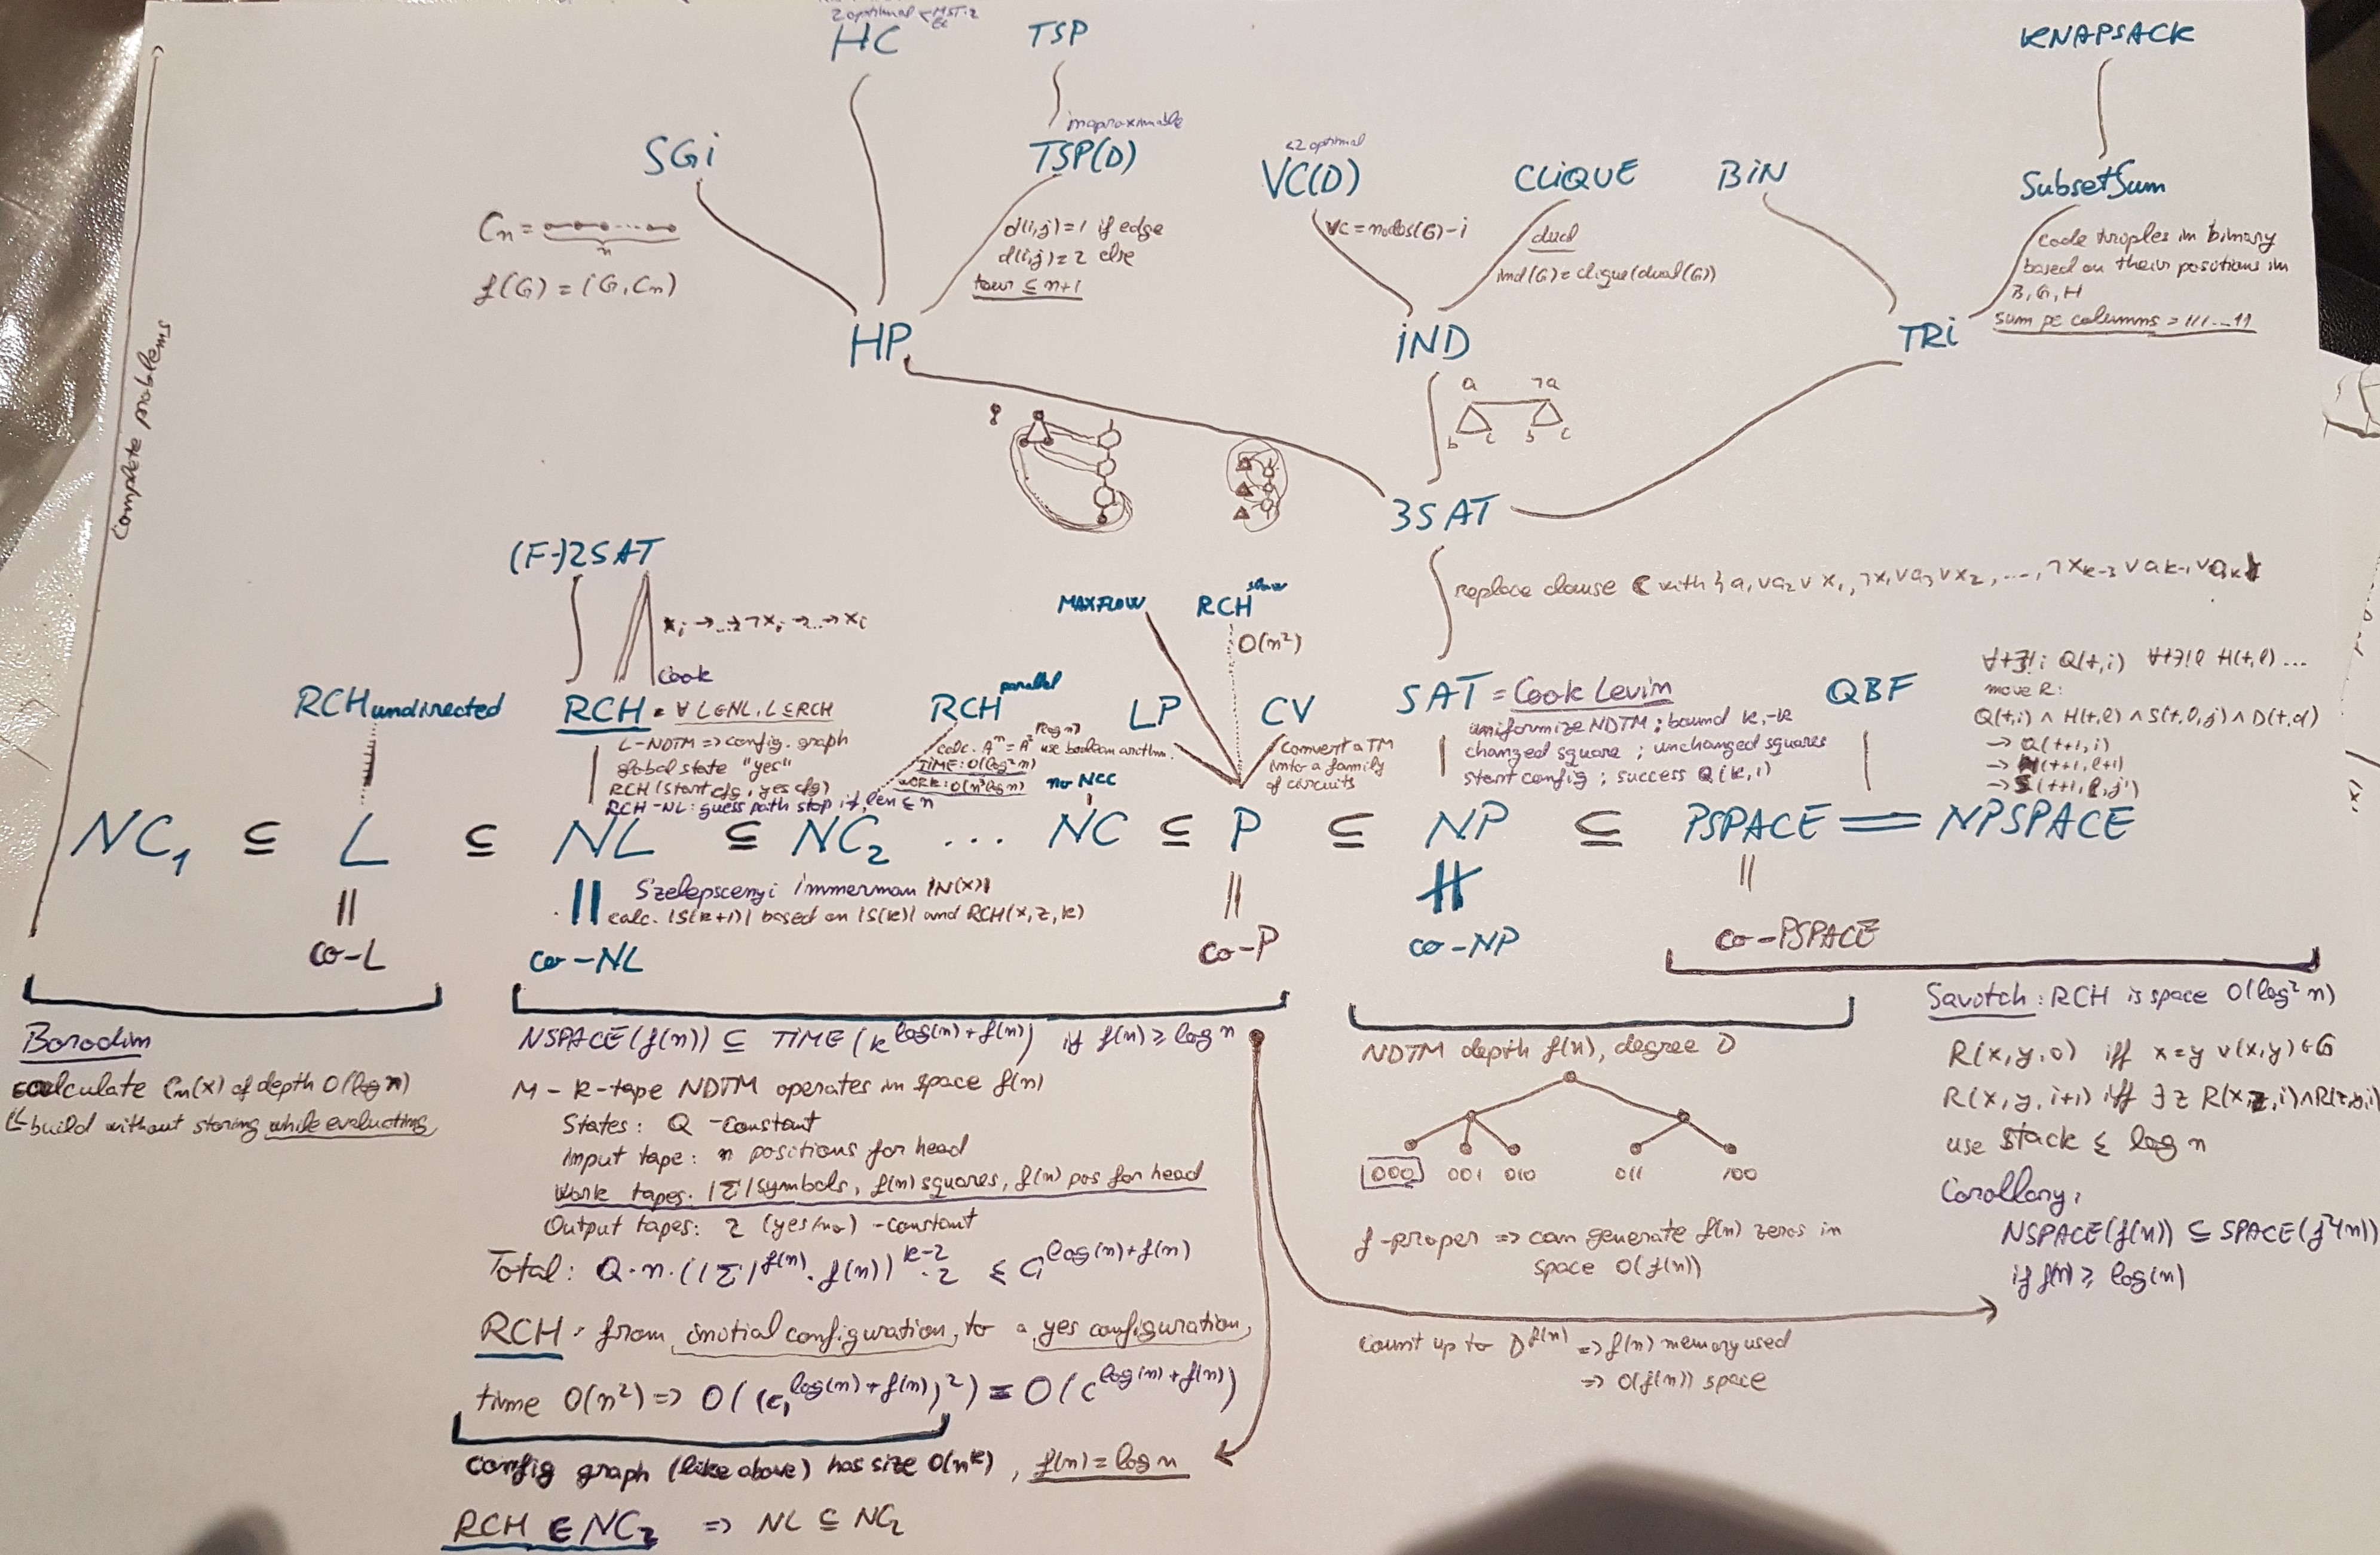 2 optimal
HC
TSP
KNAPSACK
SGi
inaproximable
TSP(D)
<2 optimal
VC(D)
CLiQUE
BiN
SubsetSum
Cn =
n
f(G) = (G, Cn)
d(i,j)=1 if edge
d(i,j)=2 else
tour ≤ n+1
VC = nodes(G)-i
dual
ind(G) = clique(dual(G))
code triples in binary
based on their positions in
B, G, H
sum pe columns = 111...11
HP
iND
TRi
a ¬a
b c b c
Complete problems
3SAT
(F-)2SAT
xi →...→ ¬xi →...→ xi
Cook
MAXFLOW
RCH
O(n²)
replace clause C with { a1 ∨ a2 ∨ x1, ¬x1 ∨ a3 ∨ x2, ..., ¬xk-3 ∨ ak-1 ∨ ak
RCH undirected
RCH = ∀ L∈NL, L ≤ RCH
L-NDTM => config. graph
global state "yes"
RCH (start cfg, yes cfg)
RCH-NL: guess path stop if len ≤ n
RCH parallel
use boolean arithm.
TIME: O(log² n)
WORK: O(n³ log n)
no NCC
LP
CV
Convert a TM
into a family
of circuits
SAT = Cook Levin
uniformize NDTM ; bound k,-k
changed square ; unchanged squares
start config ; success Q(k,1)
QBF
∀t∃!i Q(t,i) ∀t∃!l H(t,l) ...
move R:
Q(t,i) ∧ H(t,l) ∧ S(t,l,j) ∧ D(t,d)
→ Q(t+1,i)
→ H(t+1,l+1)
→ S(t+1,l,j')
NC1 ⊆ L ⊆ NL ⊆ NC2 ... NC ⊆ P ⊆ NP ⊆ PSPACE = NPSPACE
Szelepscenyi immerman |N(x)|
calc. |S(k+1)| based on |S(k)| and RCH(x,z,k)
co-L
co-NL
co-P
co-NP
co-PSPACE
Borodin
calculate Cn(x) of depth O(log n)
build without storing while evaluating
NSPACE(f(n)) ⊆ TIME(k^log(n)+f(n)) if f(n) ≥ log n
M - k-tape NDTM operates in space f(n)
States: Q - constant
input tape: n positions for head
Work tapes: |Σ| symbols, f(n) squares, f(n) pos for head
Output tapes: 2 (yes/no) - constant
Total: Q·n·(|Σ|^f(n)·f(n))^k-2·2 ≤ C1^log(n)+f(n)
RCH: from initial configuration, to a yes configuration,
time O(n²) => O((c1^log(n)+f(n))²) = O(c^log(n)+f(n))
config graph (like above) has size O(n^k), f(n) = log n
RCH ∈ NC2 => NL ⊆ NC2
NDTM depth f(n), degree D
000 001 010 011 100
f-proper => can generate f(n) zeros in
space O(f(n))
count up to D^f(n) => f(n) memory used
=> O(f(n)) space
Savotch: RCH is space O(log² n)
R(x,y,0) iff x=y ∨ (x,y)∈G
R(x,y,i+1) iff ∃z R(x,z,i) ∧ R(z,y,i)
use stack ≤ log n
Corollary:
NSPACE(f(n)) ⊆ SPACE(f²(n))
if f(n) ≥ log(n)